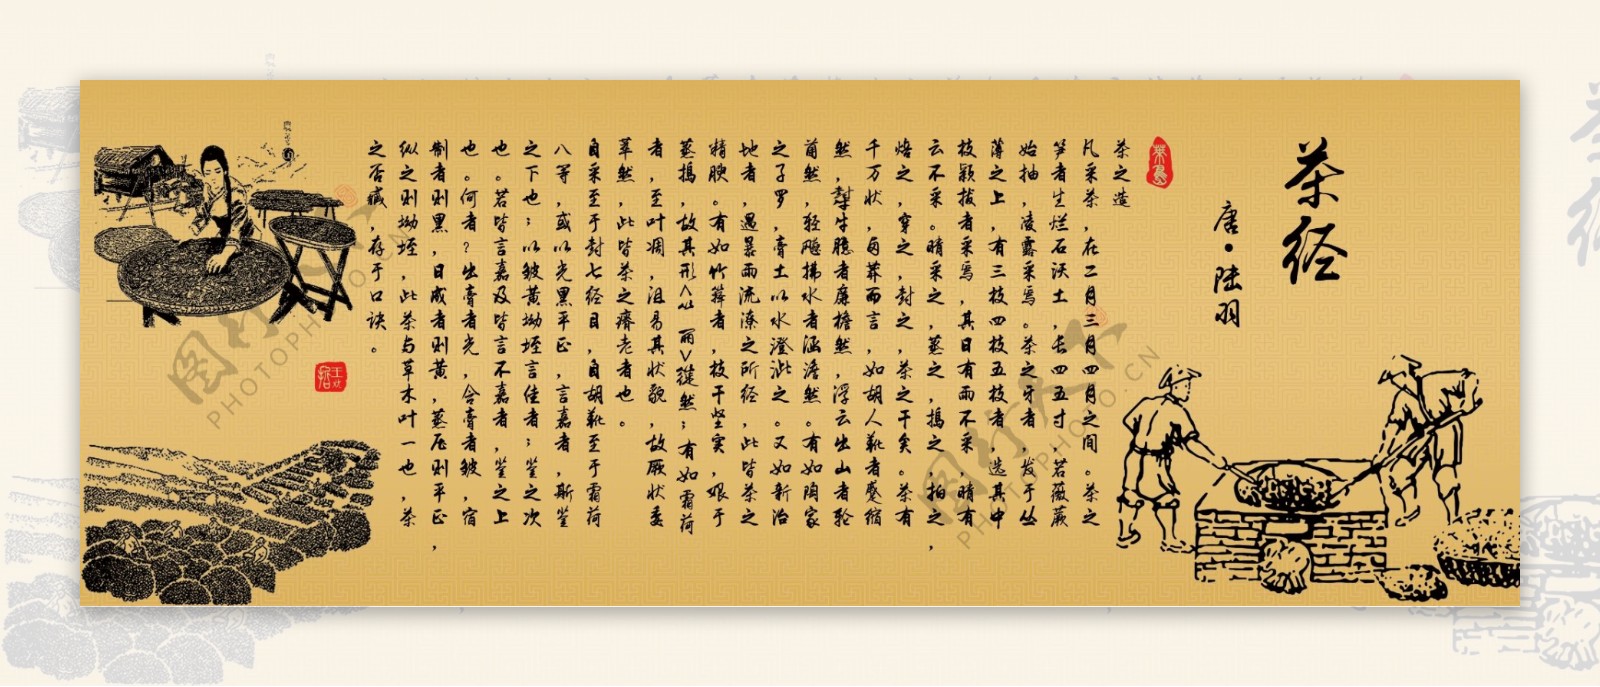 茶经
唐·陆羽
茶之造
凡采茶，在二月三月四月之间。茶之
笋者生烂石沃土，长四五寸，若薇蕨
始抽，凌露采焉。茶之牙者，发于丛
薄之上，有三枝四枝五枝者，选其中
枝颖拔者采焉，其日有雨不采，晴有
云不采。晴采之，蒸之，捣之，拍之，
焙之，穿之，封之，茶之干矣。茶有
千万状，卤莽而言，如胡人靴者蹙缩
然，牛臆者廉襜然，浮云出山者轮
菌然，轻飚拂水者涵澹然。有如陶家
之子罗，膏土以水澄泚之。又如新治
地者，遇暴雨流潦之所经，此皆茶之
精腴。有如竹箨者，枝干坚实，艰于
蒸捣，故其形<丽>然；有如霜荷
者，至叶凋，沮易其状貌，故厥状委
萃然，此皆茶之瘠老者也。
自采至于封七经目，自胡靴至于霜荷
八等，或以光黑平正，言嘉者，斯鉴
之下也；以皱黄坳垤言佳者；鉴之次
也。若皆言嘉及皆言不嘉者，鉴之上
也。何者？出膏者光，含膏者皱，宿
制者则黑，日成者则黄，蒸压则平正，
纵之则坳垤，此茶与草木叶一也，茶
之否臧，存于口诀。
PHOTOPHOTO.CN